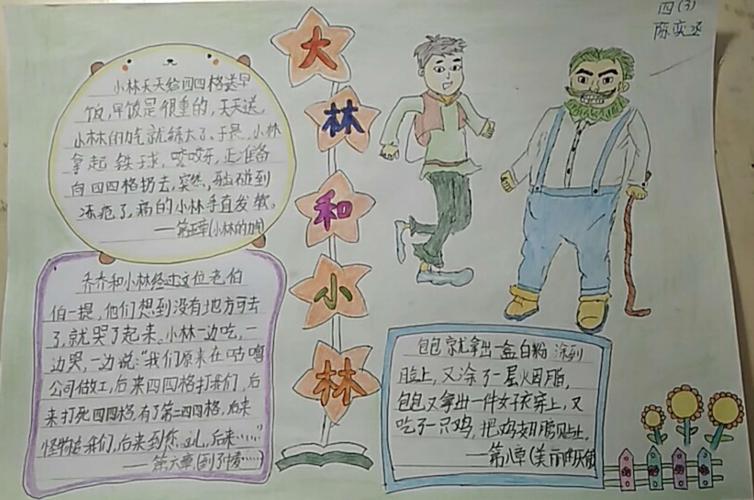 四(3)
陈奕丞
大
林
和
小
林
小林天天给四四格送早
饭,早饭是很重的,天天送,
小林的力气就练大了,于是,小林
拿起铁球,咬咬牙,正准备
向四四格扔去,突然,碰到
冻疮了,痛的小林手直发软。
——第五章(小林的力气)
乔乔和小林经过这位老伯
伯一提,他们想到没有地方可去
了,就哭了起来。小林一边吃,一
边哭,一边说:“我们原来在咕噜
公司做工,后来四四格打我们,后
来打死四四格,有了第二四四格,后来
怪物追我们,后来到你这儿,后来……”
——第六章(到了中麦……)
包包就拿出一盒白粉涂到
脸上,又涂了一层火因脂,
包包又拿出一件女衣穿上,又
吃了一只鸡,把鸡
——第八章(美丽的天使)